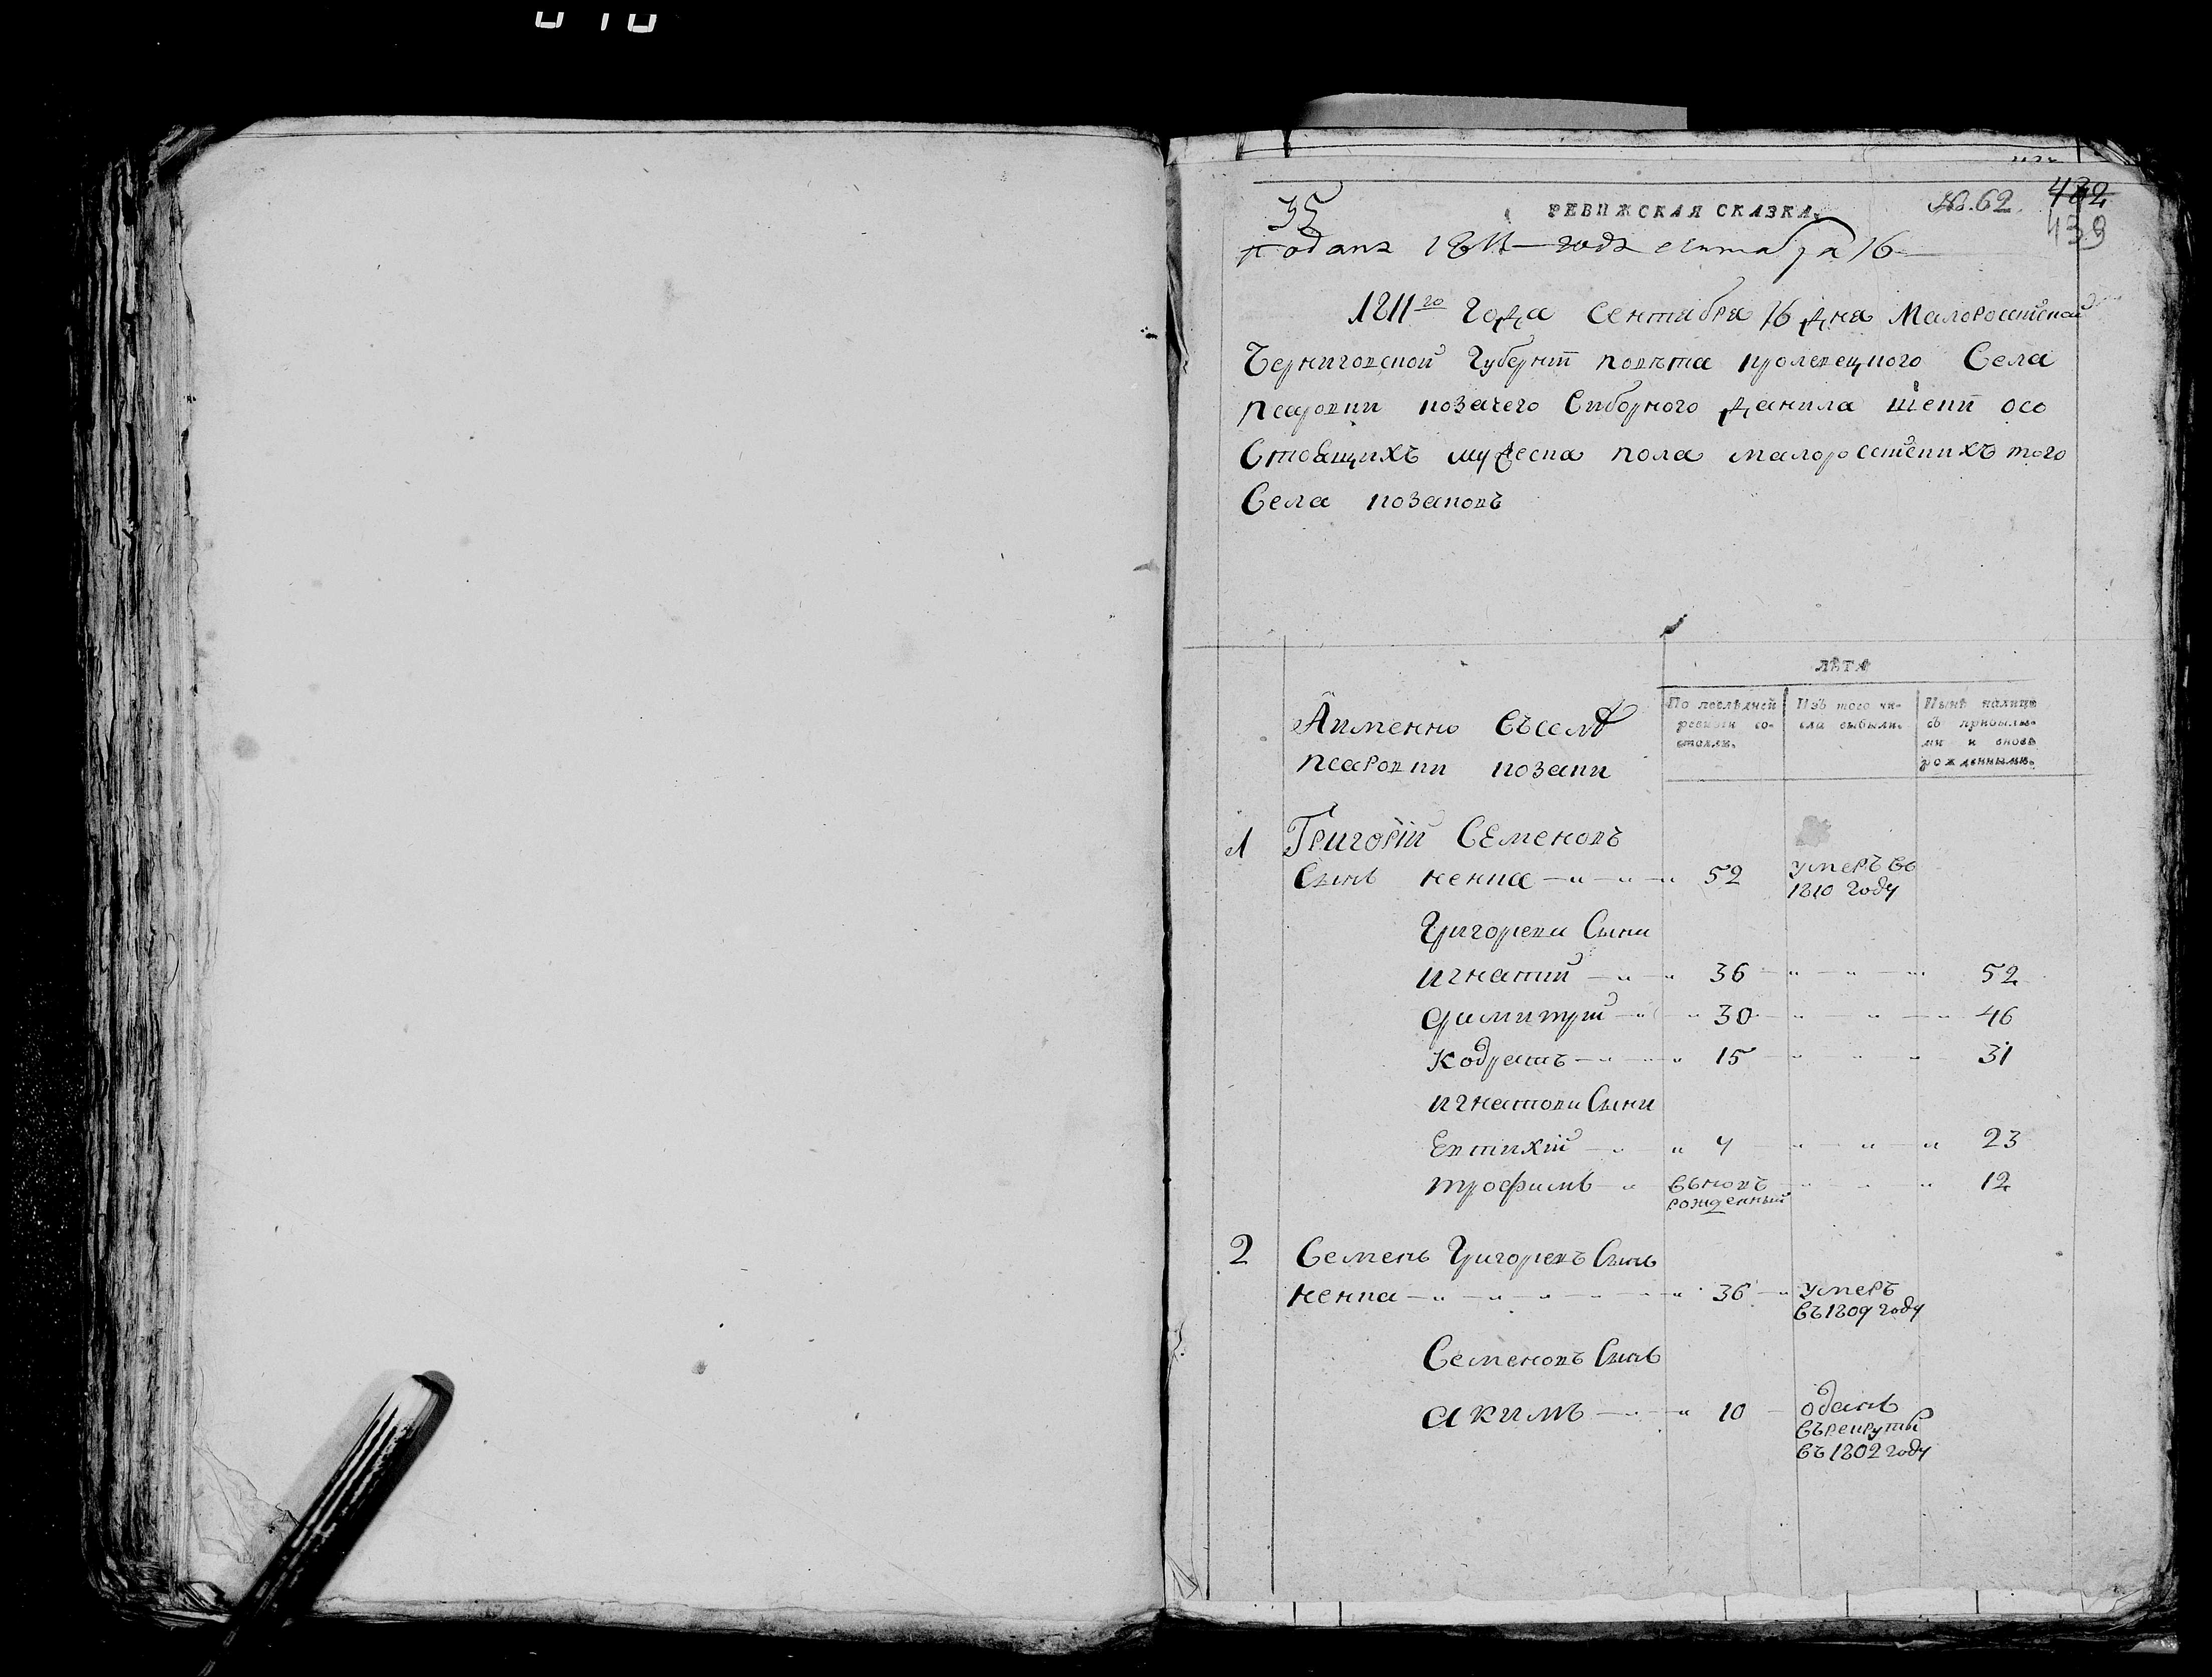 35
РЕВИЖСКАЯ СКАЗКА.
№. 62.
432
439
подана 1811 года сентабра 16
1811го Года Сентября 16 Дня Малоросейской
Черниговской Губернїи повѣта кролевецкого Села
псаровки козачего Виборного Данила осо
Стоящихъ мужеска пола малоросейскихъ того
Села козаковъ
ЛѢТА
По послѣдней ревизіи состояли.
Изъ того числа выбыли.
Нынѣ на лицѣ съ прибылыми и вновь рожденными.
Аименно Въселѣ
псаровки козаки
1 Григорій Семеновъ
Сынъ кенка 52 умеръ въ 1810 году
Григореви Сыни
игнатий 36 52
Димитрий 30 46
Кодратъ 15 31
игнатови Сыни
Евтихій 7 23
трофимъ вьновъ рожденный 12
2 Семенъ Григоревъ Сынъ
кенка 36 умеръ въ 1809 году
Семеновъ Сынъ
акимъ 10 оданъ въ рекруты въ 1802 году